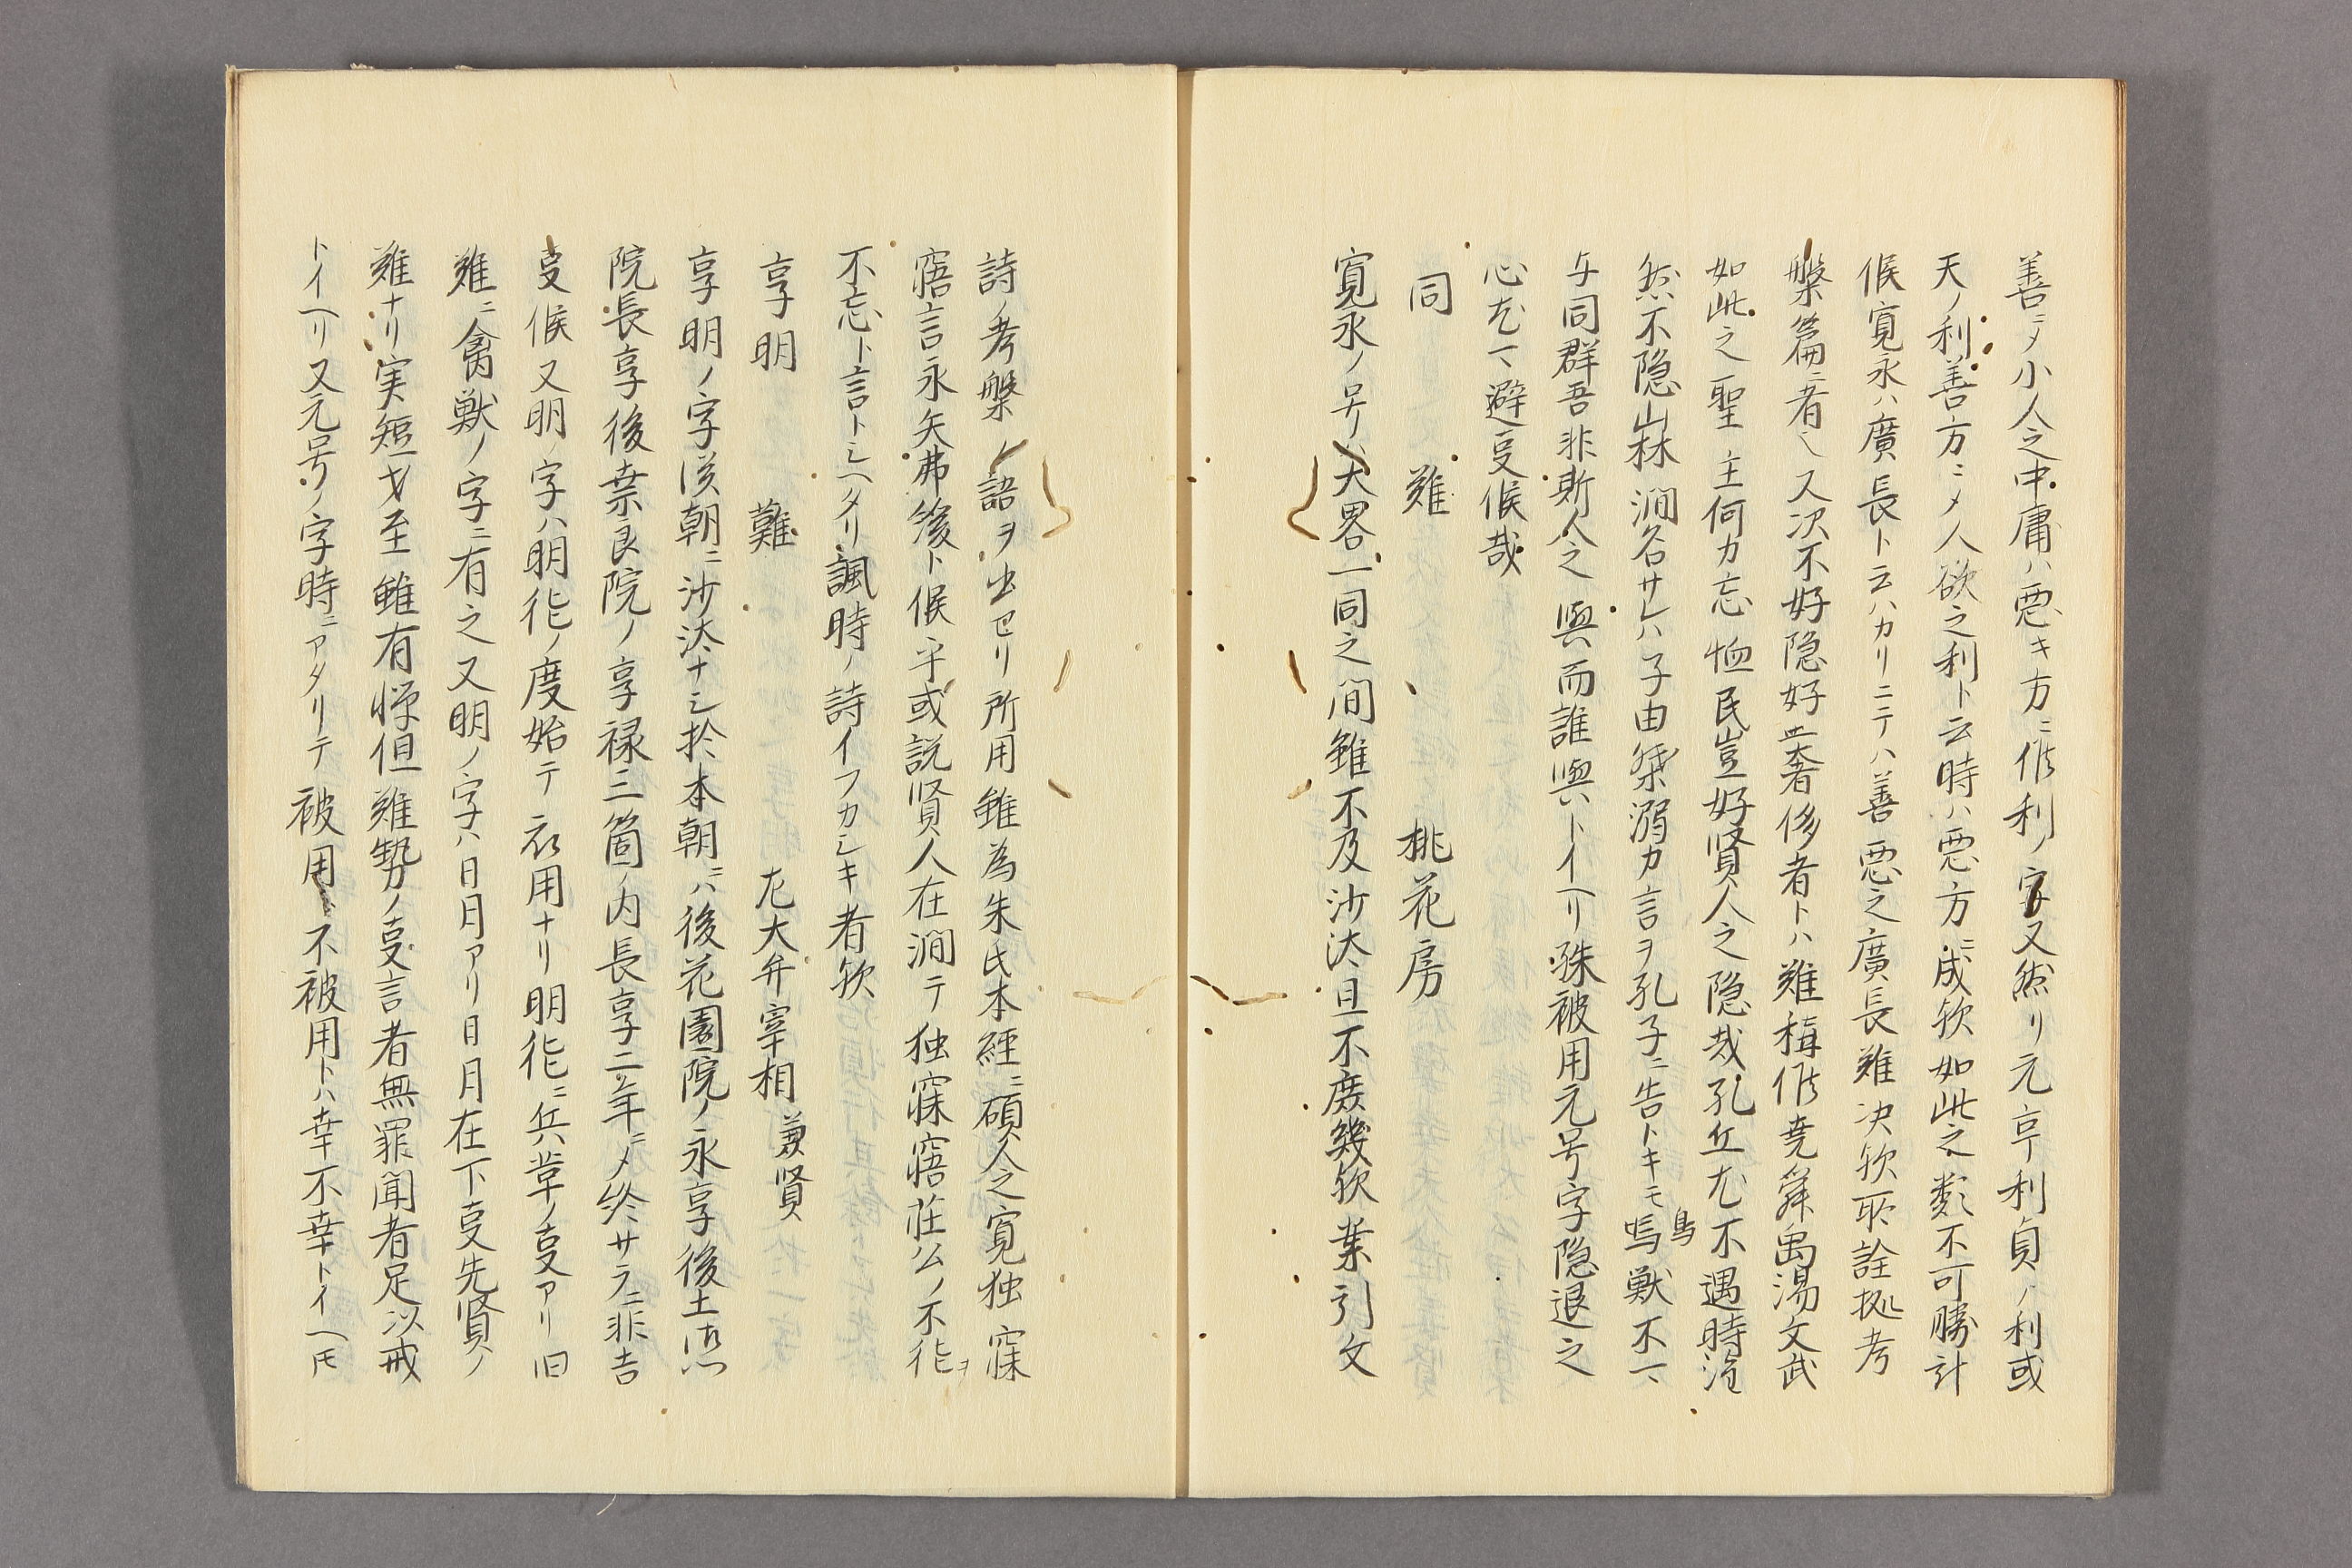 善ニメ小人之中庸ハ悪キ方ニ候利ノ字又然リ元亨利貞ノ利或
天ノ利善方ニメ人欲之利ト云時ハ悪方ニ成欤如此之類不可勝計
候寛永ハ廣長ト云ハカリニテハ善悪之廣長難决欤取詮拠考
槃篇ニ者又次不好隠好奢侈者トハ難稱候堯舜禹湯文武
如此之聖主何カ忘恤民豈好賢人之隠哉孔丘尤不遇時
然不隠山林澗谷サレハ子由桀溺カ言ヲ孔子ニ告トキモ嗚獣不可
鳥
与同群吾非斯人之與而誰與トイヘリ殊被用元号字隠退之
心尤可避叓候哉
同　難　桃花房
寛永ノ号ハ大畧一同之間雖不及沙汰且不庶幾欤葉引文
詩ノ考槃ノ語ヲ出セリ所用雖為朱氏本經ニ碩人之寛独寐
寤言永矢弗諼ト候乎或説賢人在澗テ独寐寤荘公ノ不能ヲ
不忘ト言トシヘタリ諷時ノ詩イフカシキ者欤
享明　難　左大弁宰相兼賢
享明ノ字漢朝ニ沙汰ナシ於本朝ニハ後花園院ノ永享後土御門
院長享後奈良院ノ享禄三箇ノ内長享二年ニメ終サラニ非吉
叓候又明ノ字ハ明化ノ度始テ衣用ナリ明化ニ兵革ノ叓アリ旧
難ニ禽獣ノ字ニ有之又明ノ字ハ日月アリ日月在下叓先賢ノ
難ナリ実短才至雖有憚但難勢ノ叓言者無罪聞者足以戒
トイヘリ又元号ノ字時ニアタリテ被用不被用トハ幸不幸トイヘ𪜈